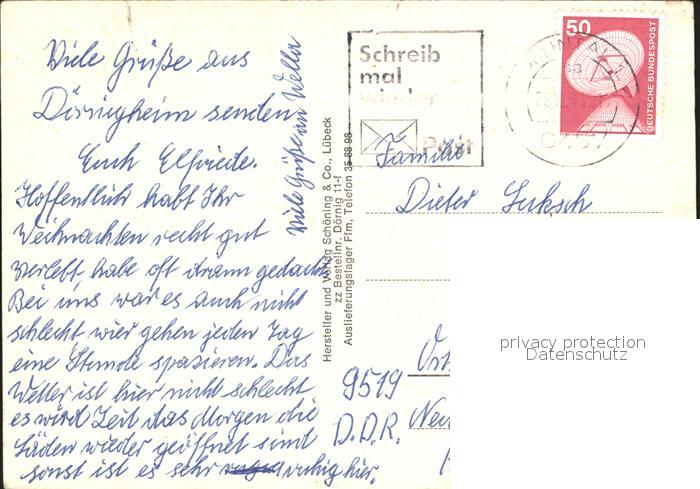 Viele Grüße aus
Dörnigheim senden
Euch Elfriede.
Hoffentlich habt Ihr
Weihnachten recht gut
verlebt, habe oft dran gedacht
Bei uns war es auch nicht
schlecht, wier gehen jeden Tag
eine Stunde spazieren. Das
Wetter ist hier nicht schlecht
es wird Zeit das Morgen die
Läden wieder geöffnet sind
sonst ist es sehr ruhig hier.
Viele Grüße an Wella
Hersteller und Verlag Schöning & Co., Lübeck
zz Bestellnr. Dörnig 11-f
Auslieferungslager Ffm, Telefon 35 88 93
Schreib
mal
wieder
Post
50
DEUTSCHE BUNDESPOST
Familie
Dieter Luksch
privacy protection
Datenschutz
9519
D.D.R.